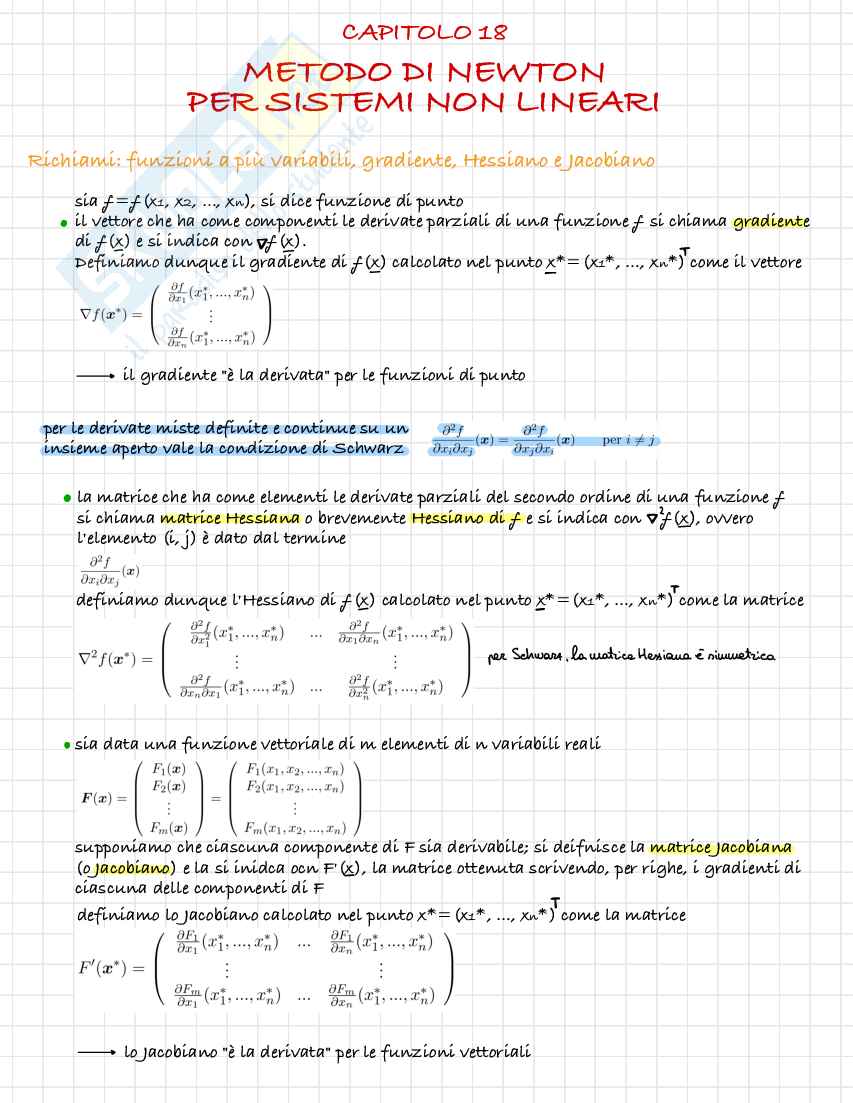 CAPITOLO 18
METODO DI NEWTON
PER SISTEMI NON LINEARI
Richiami: funzioni a più variabili, gradiente, Hessiano e Jacobiano
sia f = f (x₁, x₂, ..., xₙ), si dice funzione di punto
• il vettore che ha come componenti le derivate parziali di una funzione f si chiama gradiente
di f (x) e si indica con ∇f (x).
Definiamo dunque il gradiente di f (x) calcolato nel punto x* = (x₁*, ..., xₙ*)ᵀ come il vettore
∇f(x*) = ( ∂f/∂x₁ (x₁*, ..., xₙ*)
⋮
∂f/∂xₙ (x₁*, ..., xₙ*) )
⟶ il gradiente "è la derivata" per le funzioni di punto
per le derivate miste definite e continue su un
insieme aperto vale la condizione di Schwarz
∂²f/∂xᵢ∂xⱼ (x) = ∂²f/∂xⱼ∂xᵢ (x) per i ≠ j
• la matrice che ha come elementi le derivate parziali del secondo ordine di una funzione f
si chiama matrice Hessiana o brevemente Hessiano di f e si indica con ∇²f (x), ovvero
l'elemento (i, j) è dato dal termine
∂²f/∂xᵢ∂xⱼ (x)
definiamo dunque l'Hessiano di f (x) calcolato nel punto x* = (x₁*, ..., xₙ*)ᵀ come la matrice
∇²f(x*) = ( ∂²f/∂x₁² (x₁*, ..., xₙ*) ... ∂²f/∂x₁∂xₙ (x₁*, ..., xₙ*)
⋮ ⋮
∂²f/∂xₙ∂x₁ (x₁*, ..., xₙ*) ... ∂²f/∂xₙ² (x₁*, ..., xₙ*) )
per Schwarz, la matrice Hessiana è simmetrica
• sia data una funzione vettoriale di m elementi di n variabili reali
F(x) = ( F₁(x) F₂(x) ⋮ Fₘ(x) ) = ( F₁(x₁, x₂, ..., xₙ)
F₂(x₁, x₂, ..., xₙ)
⋮
Fₘ(x₁, x₂, ..., xₙ) )
supponiamo che ciascuna componente di F sia derivabile; si deifnisce la matrice Jacobiana
(o Jacobiano) e la si inidca ocn F'(x), la matrice ottenuta scrivendo, per righe, i gradienti di
ciascuna delle componenti di F
definiamo lo Jacobiano calcolato nel punto x* = (x₁*, ..., xₙ*)ᵀ come la matrice
F'(x*) = ( ∂F₁/∂x₁ (x₁*, ..., xₙ*) ... ∂F₁/∂xₙ (x₁*, ..., xₙ*)
⋮ ⋮
∂Fₘ/∂x₁ (x₁*, ..., xₙ*) ... ∂Fₘ/∂xₙ (x₁*, ..., xₙ*) )
⟶ lo Jacobiano "è la derivata" per le funzioni vettoriali